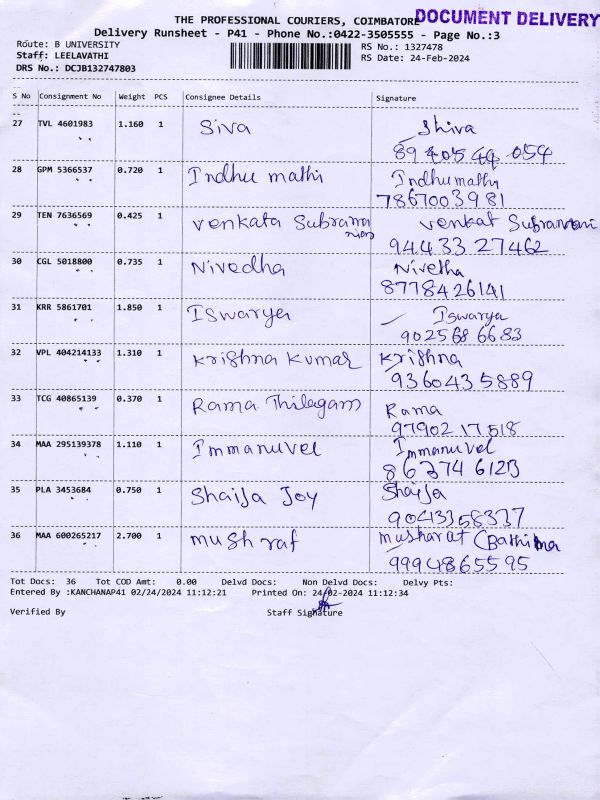 THE PROFESSIONAL COURIERS, COIMBATORE
DOCUMENT DELIVERY
Delivery Runsheet - P41 - Phone No.:0422-3505555 - Page No.:3
Route: B UNIVERSITY RS No.: 1327478
Staff: LEELAVATHI RS Date: 24-Feb-2024
DRS No.: DCJB132747803
S No Consignment No Weight PCS Consignee Details Signature
27 TVL 4601983 1.160 1 Siva Shiva
89 405 44 054
28 GPM 5366537 0.720 1 Indhu mathi Indhumathi
7867003981
29 TEN 7636569 0.425 1 Venkata Subrama Venkat Subramani
nian 94433 27462
30 CGL 5018800 0.735 1 Nivedha Nivetha
8778426141
31 KRR 5861701 1.850 1 Iswarya Iswarya
902568 6683
32 VPL 404214133 1.310 1 Krishna Kumar Krishna
936043 5889
33 TCG 40865139 0.370 1 Rama Thilagam Rama
97902 17518
34 MAA 295139378 1.110 1 Immanuvel Immanuvel
86374 6123
35 PLA 3453684 0.750 1 Shaija Joy Shaija
9043358337
36 MAA 600265217 2.700 1 mushraf musharat
9994865595
Tot Docs: 36 Tot COD Amt: 0.00 Delvd Docs: Non Delvd Docs: Delvy Pts:
Entered By :KANCHANAP41 02/24/2024 11:12:21 Printed On: 24-02-2024 11:12:34
Verified By Staff Signature